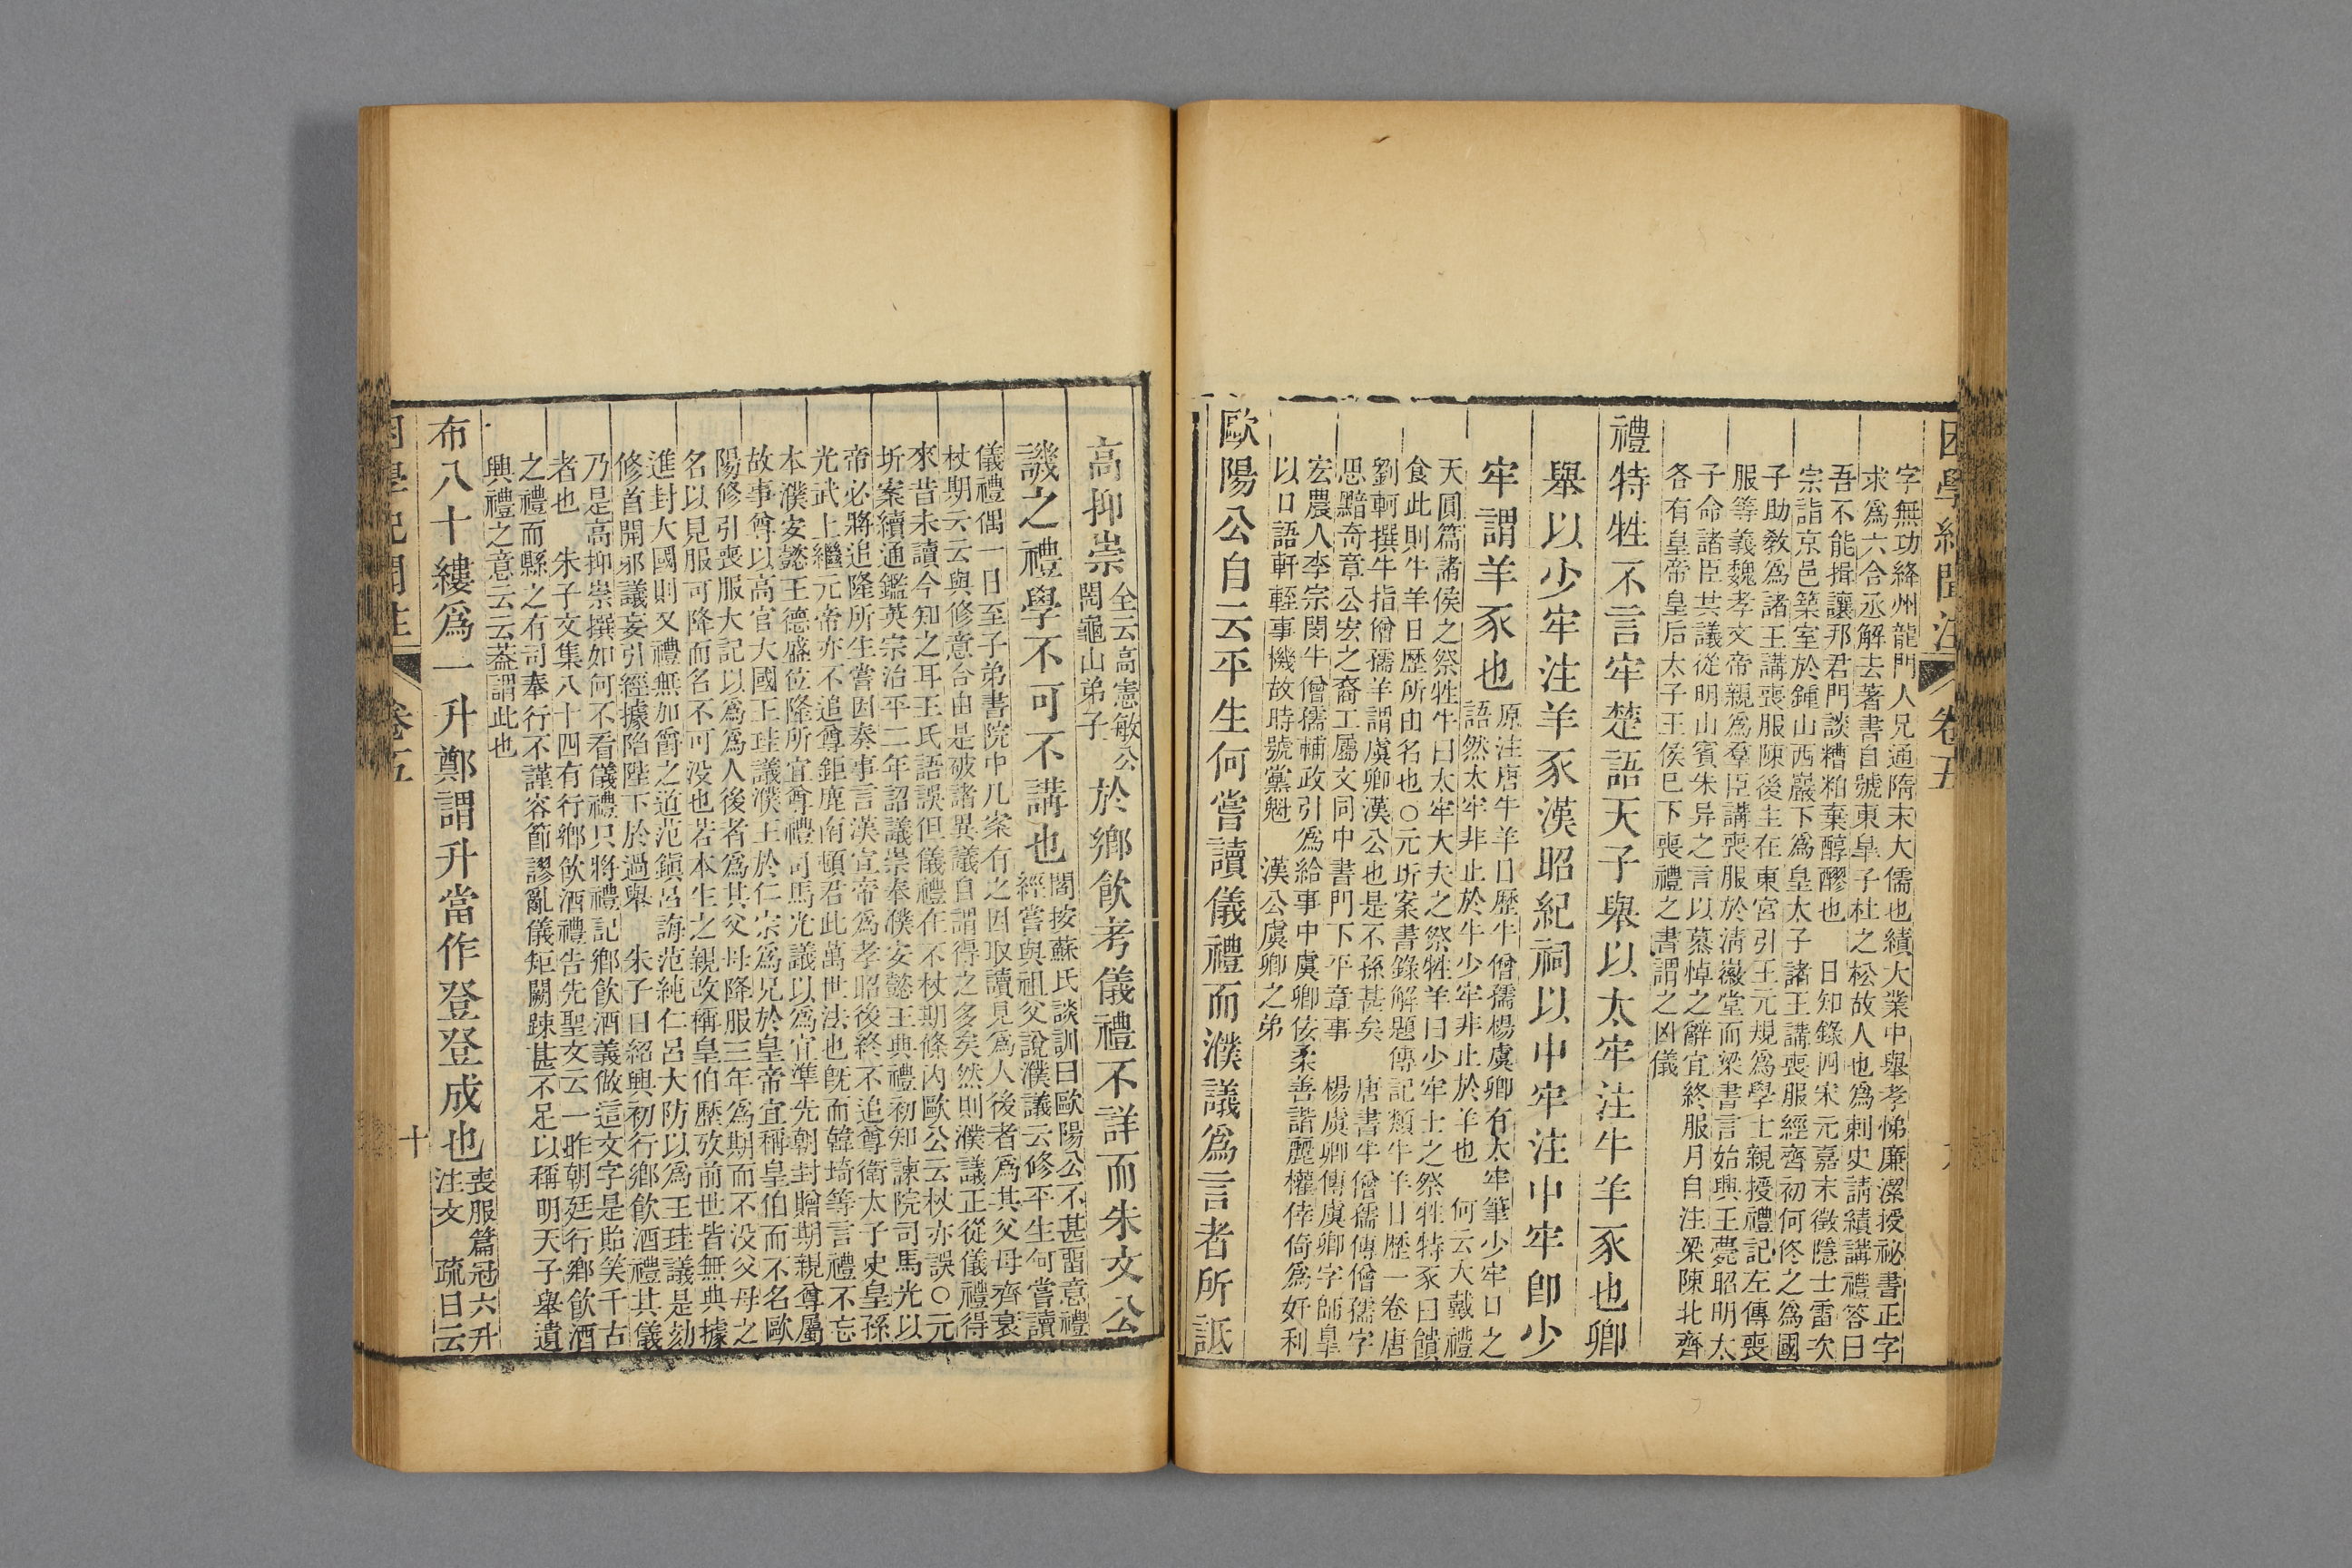 困學紀聞注 卷五
字無功絳州龍門人兄通隋末大儒也績大業中舉孝悌廉潔授祕書正字
求爲六合丞解去著書自號東皐子杜之松故人也爲刺史請績講禮答曰
吾不能揖讓邦君門談糟粕棄醇醪也　日知錄四宋元嘉末徵隱士雷次
宗詣京邑築室於鍾山西巖下爲皇太子諸王講喪服經齊初何佟之爲國
子助敎爲諸王講喪服陳後主在東宮引王元規爲學士親授禮記左傳喪
服等義魏孝文帝親爲羣臣講喪服於淸徽堂而梁書言始興王薨昭明太
子命諸臣共議從明山賓朱异之言以慕悼之辭宜終服月自注梁陳北齊
各有皇帝皇后太子王侯已下喪禮之書謂之凶儀
禮特牲不言牢楚語天子舉以太牢注牛羊豕也卿
舉以少牢注羊豕漢昭紀祠以中牢注中牢卽少
牢謂羊豕也
原注唐牛羊日歷牛僧孺楊虞卿有太牢筆少牢口之
語然太牢非止於牛少牢非止於羊也　何云大戴禮
天圓篇諸侯之祭牲牛曰太牢大夫之祭牲羊曰少牢士之祭牲特豕曰饋
食此則牛羊日歷所由名也○元圻案書錄解題傳記類牛羊日歷一卷唐
劉軻撰牛指僧孺羊謂虞卿漢公也是不孫甚矣　唐書牛僧孺傳僧孺字
思黯奇章公宏之裔工屬文同中書門下平章事　楊虞卿傳虞卿字師皐
宏農人李宗閔牛僧孺輔政引爲給事中虞卿佞柔善諧麗權倖倚爲奸利
以口語軒輊事機故時號黨魁　漢公虞卿之弟
歐陽公自云平生何嘗讀儀禮而濮議爲言者所詆
高抑崇
全云高憲敏公
閌龜山弟子
於鄉飲考儀禮不詳而朱文公
譏之禮學不可不講也
閻按蘇氏談訓曰歐陽公不甚習意禮
經嘗與祖父說濮議云修平生何嘗讀
儀禮偶一日至子弟書院中几案有之因取讀見爲人後者爲其父母齊衰
杖期云云與修意合由是破諸異議自謂得之多矣然則濮議正從儀禮得
來昔未讀今知之耳王氏語誤但儀禮在不杖期條內歐公云杖亦誤○元
圻案續通鑑英宗治平二年詔議崇奉濮安懿王典禮初知諫院司馬光以
帝必將追隆所生嘗因奏事言漢宣帝爲孝昭後終不追尊衛太子史皇孫
光武上繼元帝亦不追尊鉅鹿南頓君此萬世法也旣而韓琦等言禮不忘
本濮安懿王德盛位隆所宜尊禮司馬光議以爲宜準先朝封贈期親尊屬
故事尊以高官大國王珪議濮王於仁宗爲兄於皇帝宜稱皇伯而不名歐
陽修引喪服大記以爲爲人後者爲其父母降服三年爲期而不没父母之
名以見服可降而名不可没也若本生之親改稱皇伯歷攷前世皆無典據
進封大國則又禮無加爵之道范鎭呂誨范純仁呂大防以爲王珪議是劾
修首開邪議妄引經據陷陛下於過舉　朱子曰紹興初行鄉飲酒禮其儀
乃是高抑崇撰如何不看儀禮只將禮記鄉飲酒義做這文字是貽笑千古
者也　朱子文集八十四有行鄉飲酒禮告先聖文云一昨朝廷行鄉飲酒
之禮而縣之有司奉行不謹容節謬亂儀矩闕踈甚不足以稱明天子舉遺
興禮之意云云葢謂此也
布八十縷爲一升鄭謂升當作登登成也
喪服篇冠六升
注文　疏曰云
困學紀聞注 卷五 十